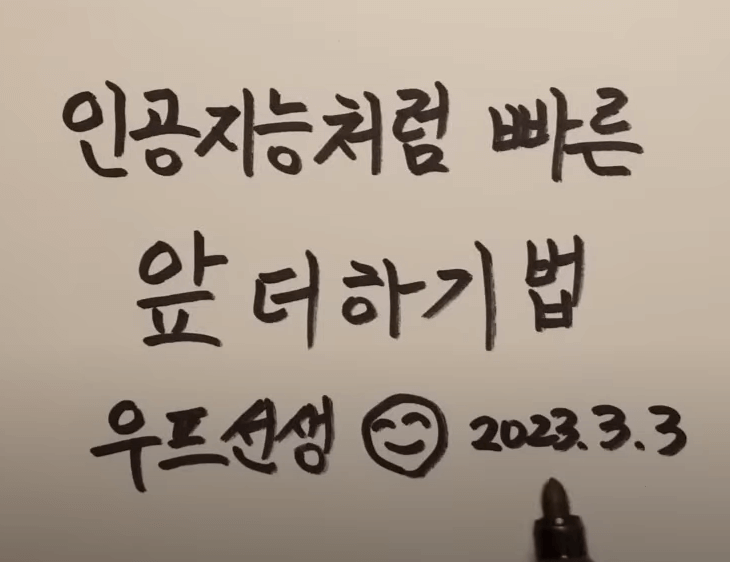 인공지능처럼 빠른
앞 더하기 법
우프선생 2023.3.3